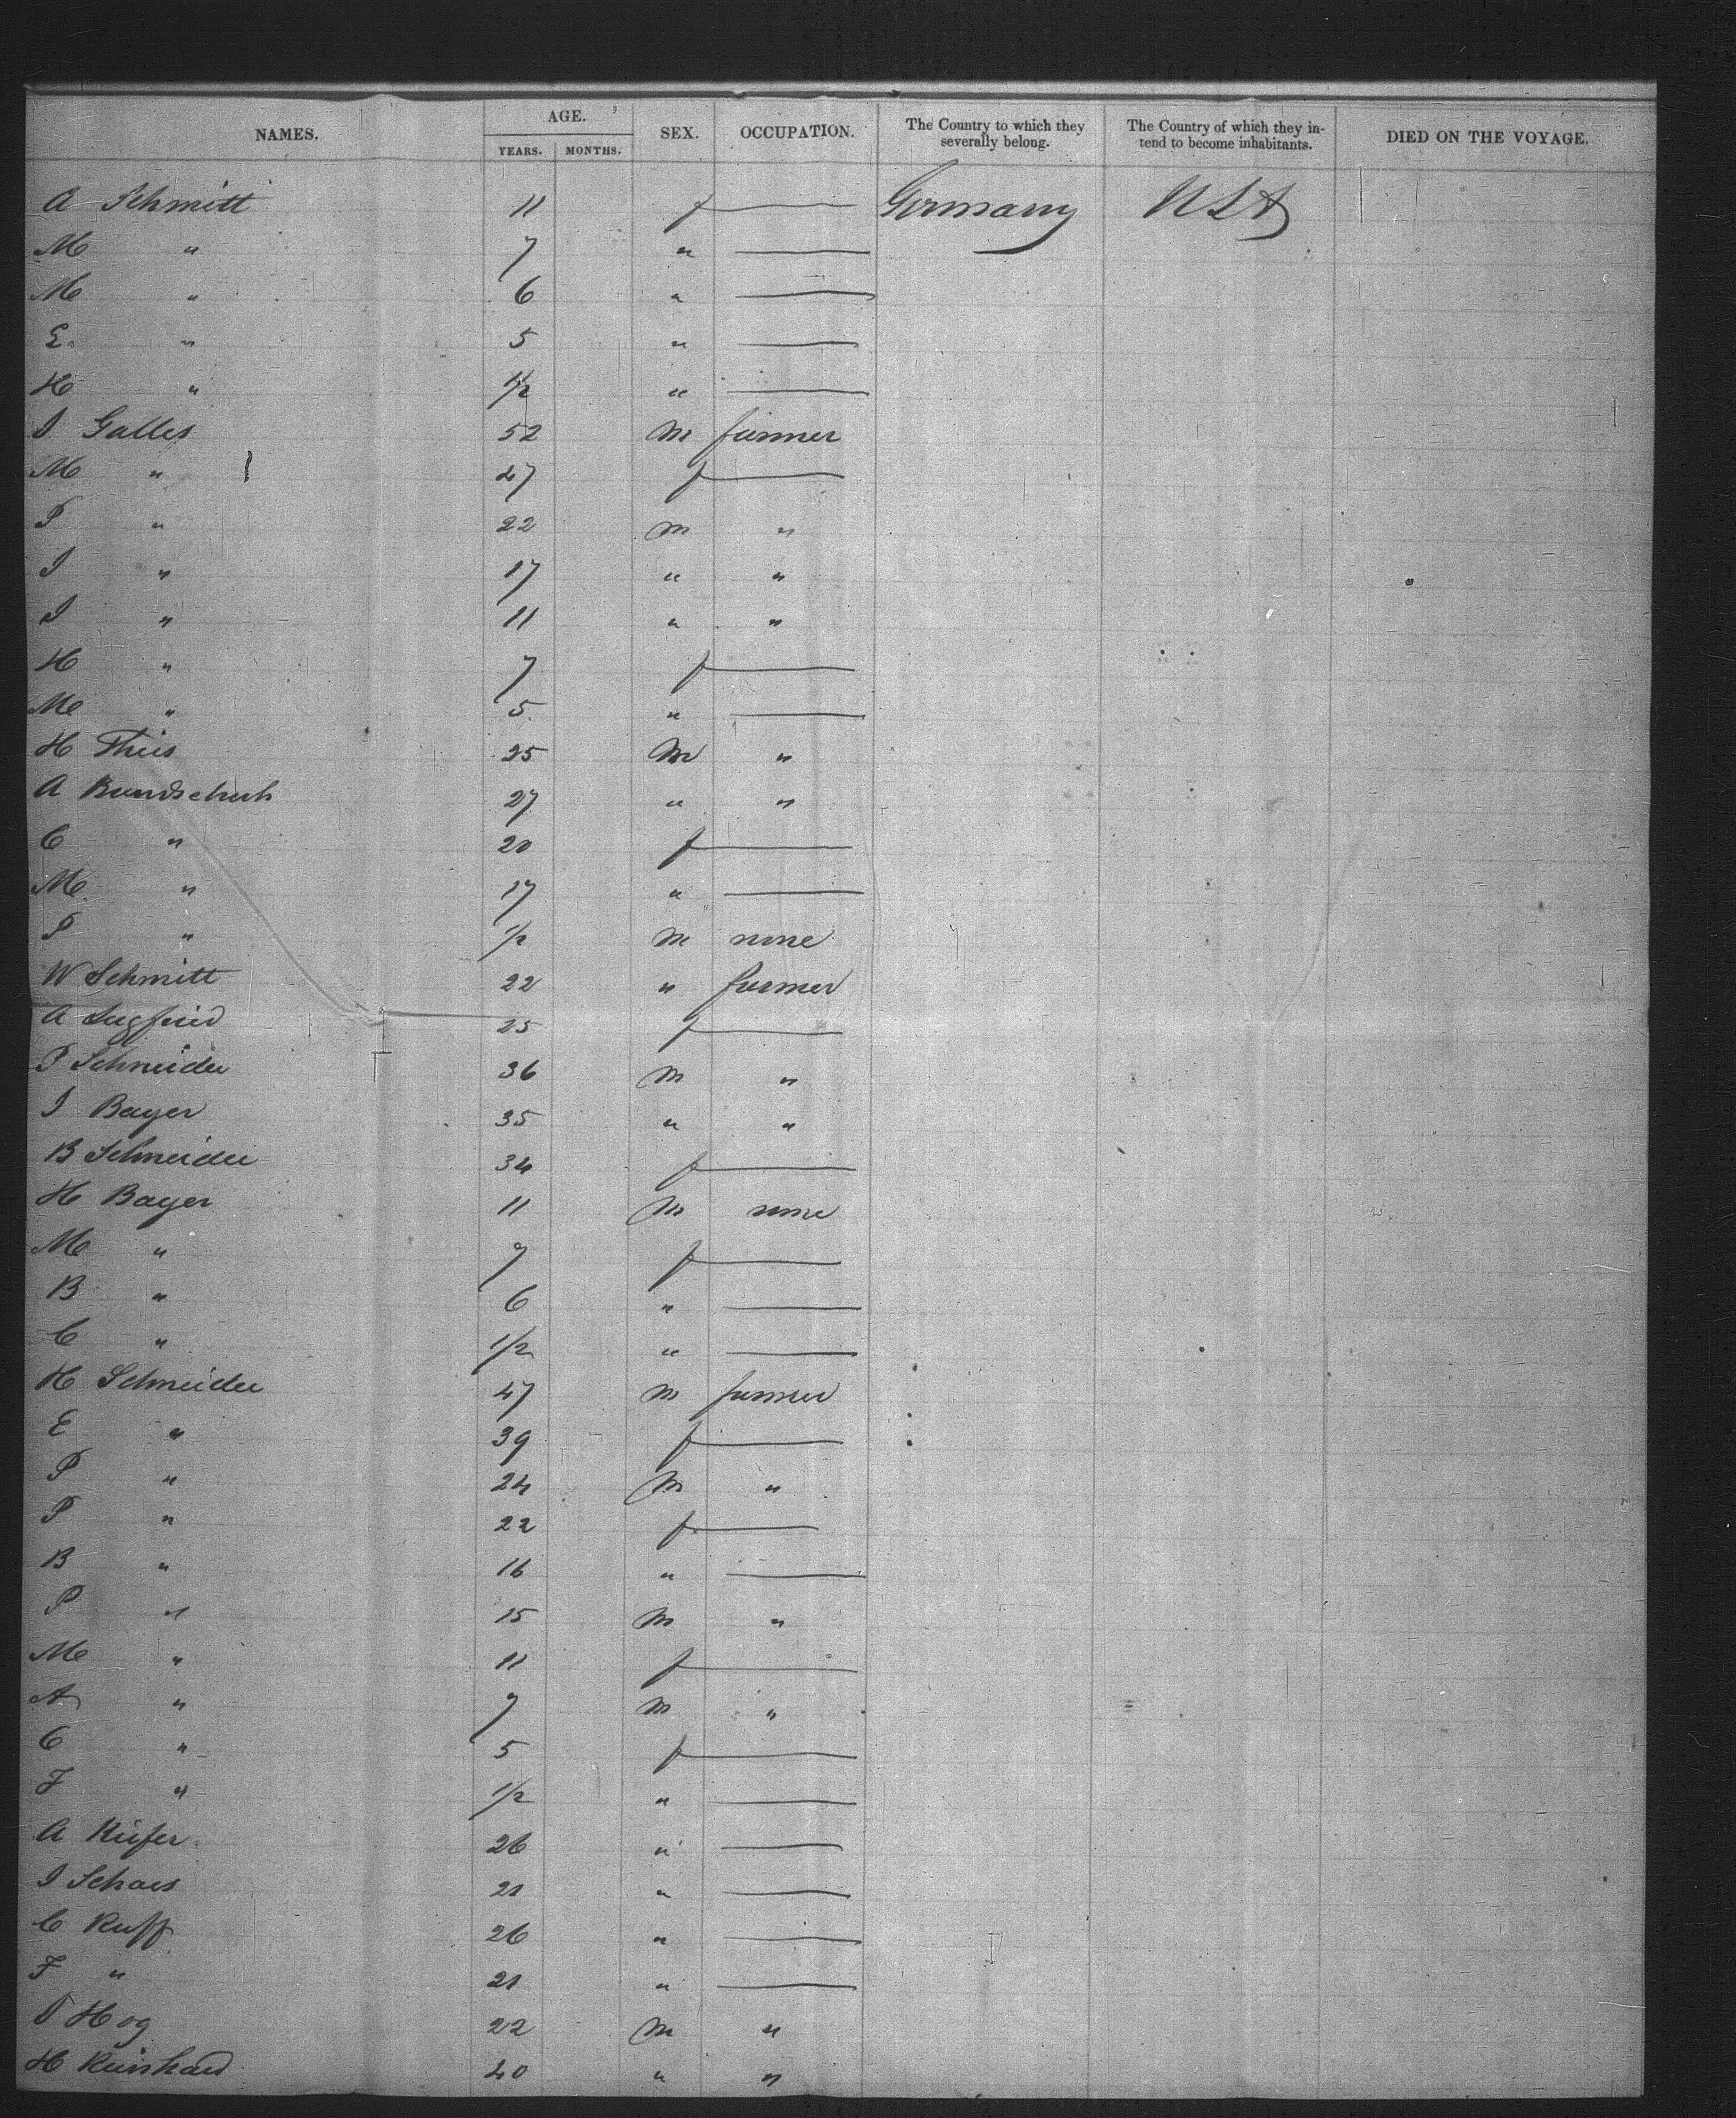 NAMES. AGE. SEX. OCCUPATION. The Country to which they severally belong. The Country of which they intend to become inhabitants. DIED ON THE VOYAGE.
YEARS. MONTHS.
A Schmitt 11 f — Germany USA
M " 7 " —
M " 6 " —
E. " 5 " —
H " 1/2 " —
J Galles 52 m farmer
M " 47 f —
P " 22 m "
J " 17 " "
J " 11 " "
H " 7 f —
M " 5 " —
H Theis 25 M "
A Bundschuh 27 " "
C " 20 f —
M " 17 " —
P " 1/2 m none
W Schmitt 22 " farmer
A 25 f —
P Schneider 36 m "
J Bayer 35 " "
B Schneider 34 f —
H Bayer 11 m none
M " 7 f —
B " 6 " —
C " 1/2 " —
H Schneider 47 m farmer
E " 39 f —
P " 24 m "
P " 22 f —
B " 16 " —
P " 15 m "
M " 11 f —
A " 7 m "
C " 5 f —
F " 1/2 " —
A Kiefer 26 " —
J Schaes 21 " —
C Ruff 26 " —
F " 21 " —
Hog 22 m "
H Reinhard 40 " "